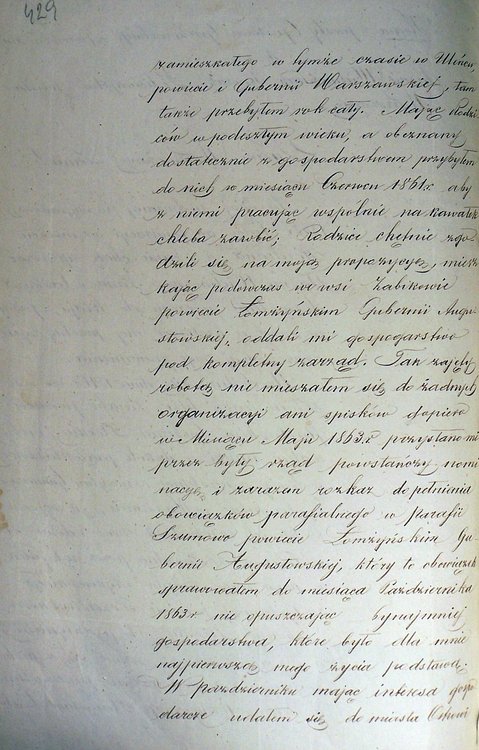 429
zamieszkałego w tymże czasie w
powiecie i Gubernii Warszawskiej, tam
także przebyłem rok cały. Mając Rodzi
ców w podeszłym wieku, a obeznany
dostatecznie z gospodarstwem przybyłem
do nich w miesiącu Czerwcu 1861 r. aby
z niemi pracując wspólnie na kawałek
chleba zarobić. Rodzice chętnie zgo
dzili się na moją propozycyę, miesz
kając podówczas we wsi Żabikowie
powiecie Łomżyńskim Gubernii Augu
stowskiej, oddali mi gospogarstwo
pod kompletny zarząd. Tak zajęty
robotą nie mieszałem się do żadnych
organizacyi ani spisków dopiero
w Miesiącu Maju 1863 r przysłano mi
przez były rząd powstańczy nomi
nacyę i zarazem rozkaz dopełniania
obowiązków parafialnego w parafii
Szumowo powiecie Łomżyńskim Gu-
bernii Augustowskiej, który to obowiązek
sprawowałem do miesiąca Października
1863 r nie opuszczając bynajmniej
gospodarstwa, które było dla mnie
najpierwszą mego życia podstawą.
W październiku mając interesa gospo
darcze udałem się do miasta Ostrowi